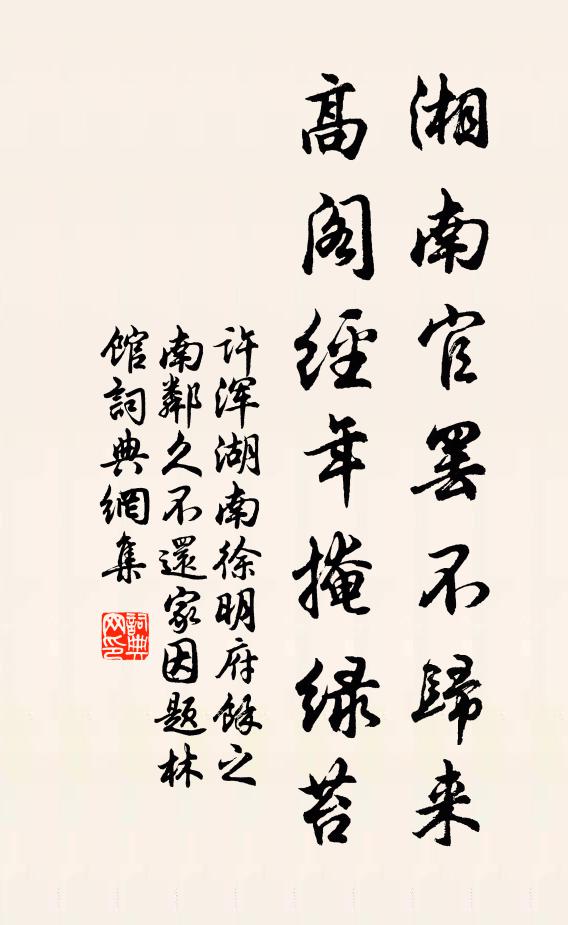 湘南官罢不歸来
高阁經年掩緑苔
许浑湖南徐明府餘之
南鄰久不還家因題林
馆詞典網集
詞典网印